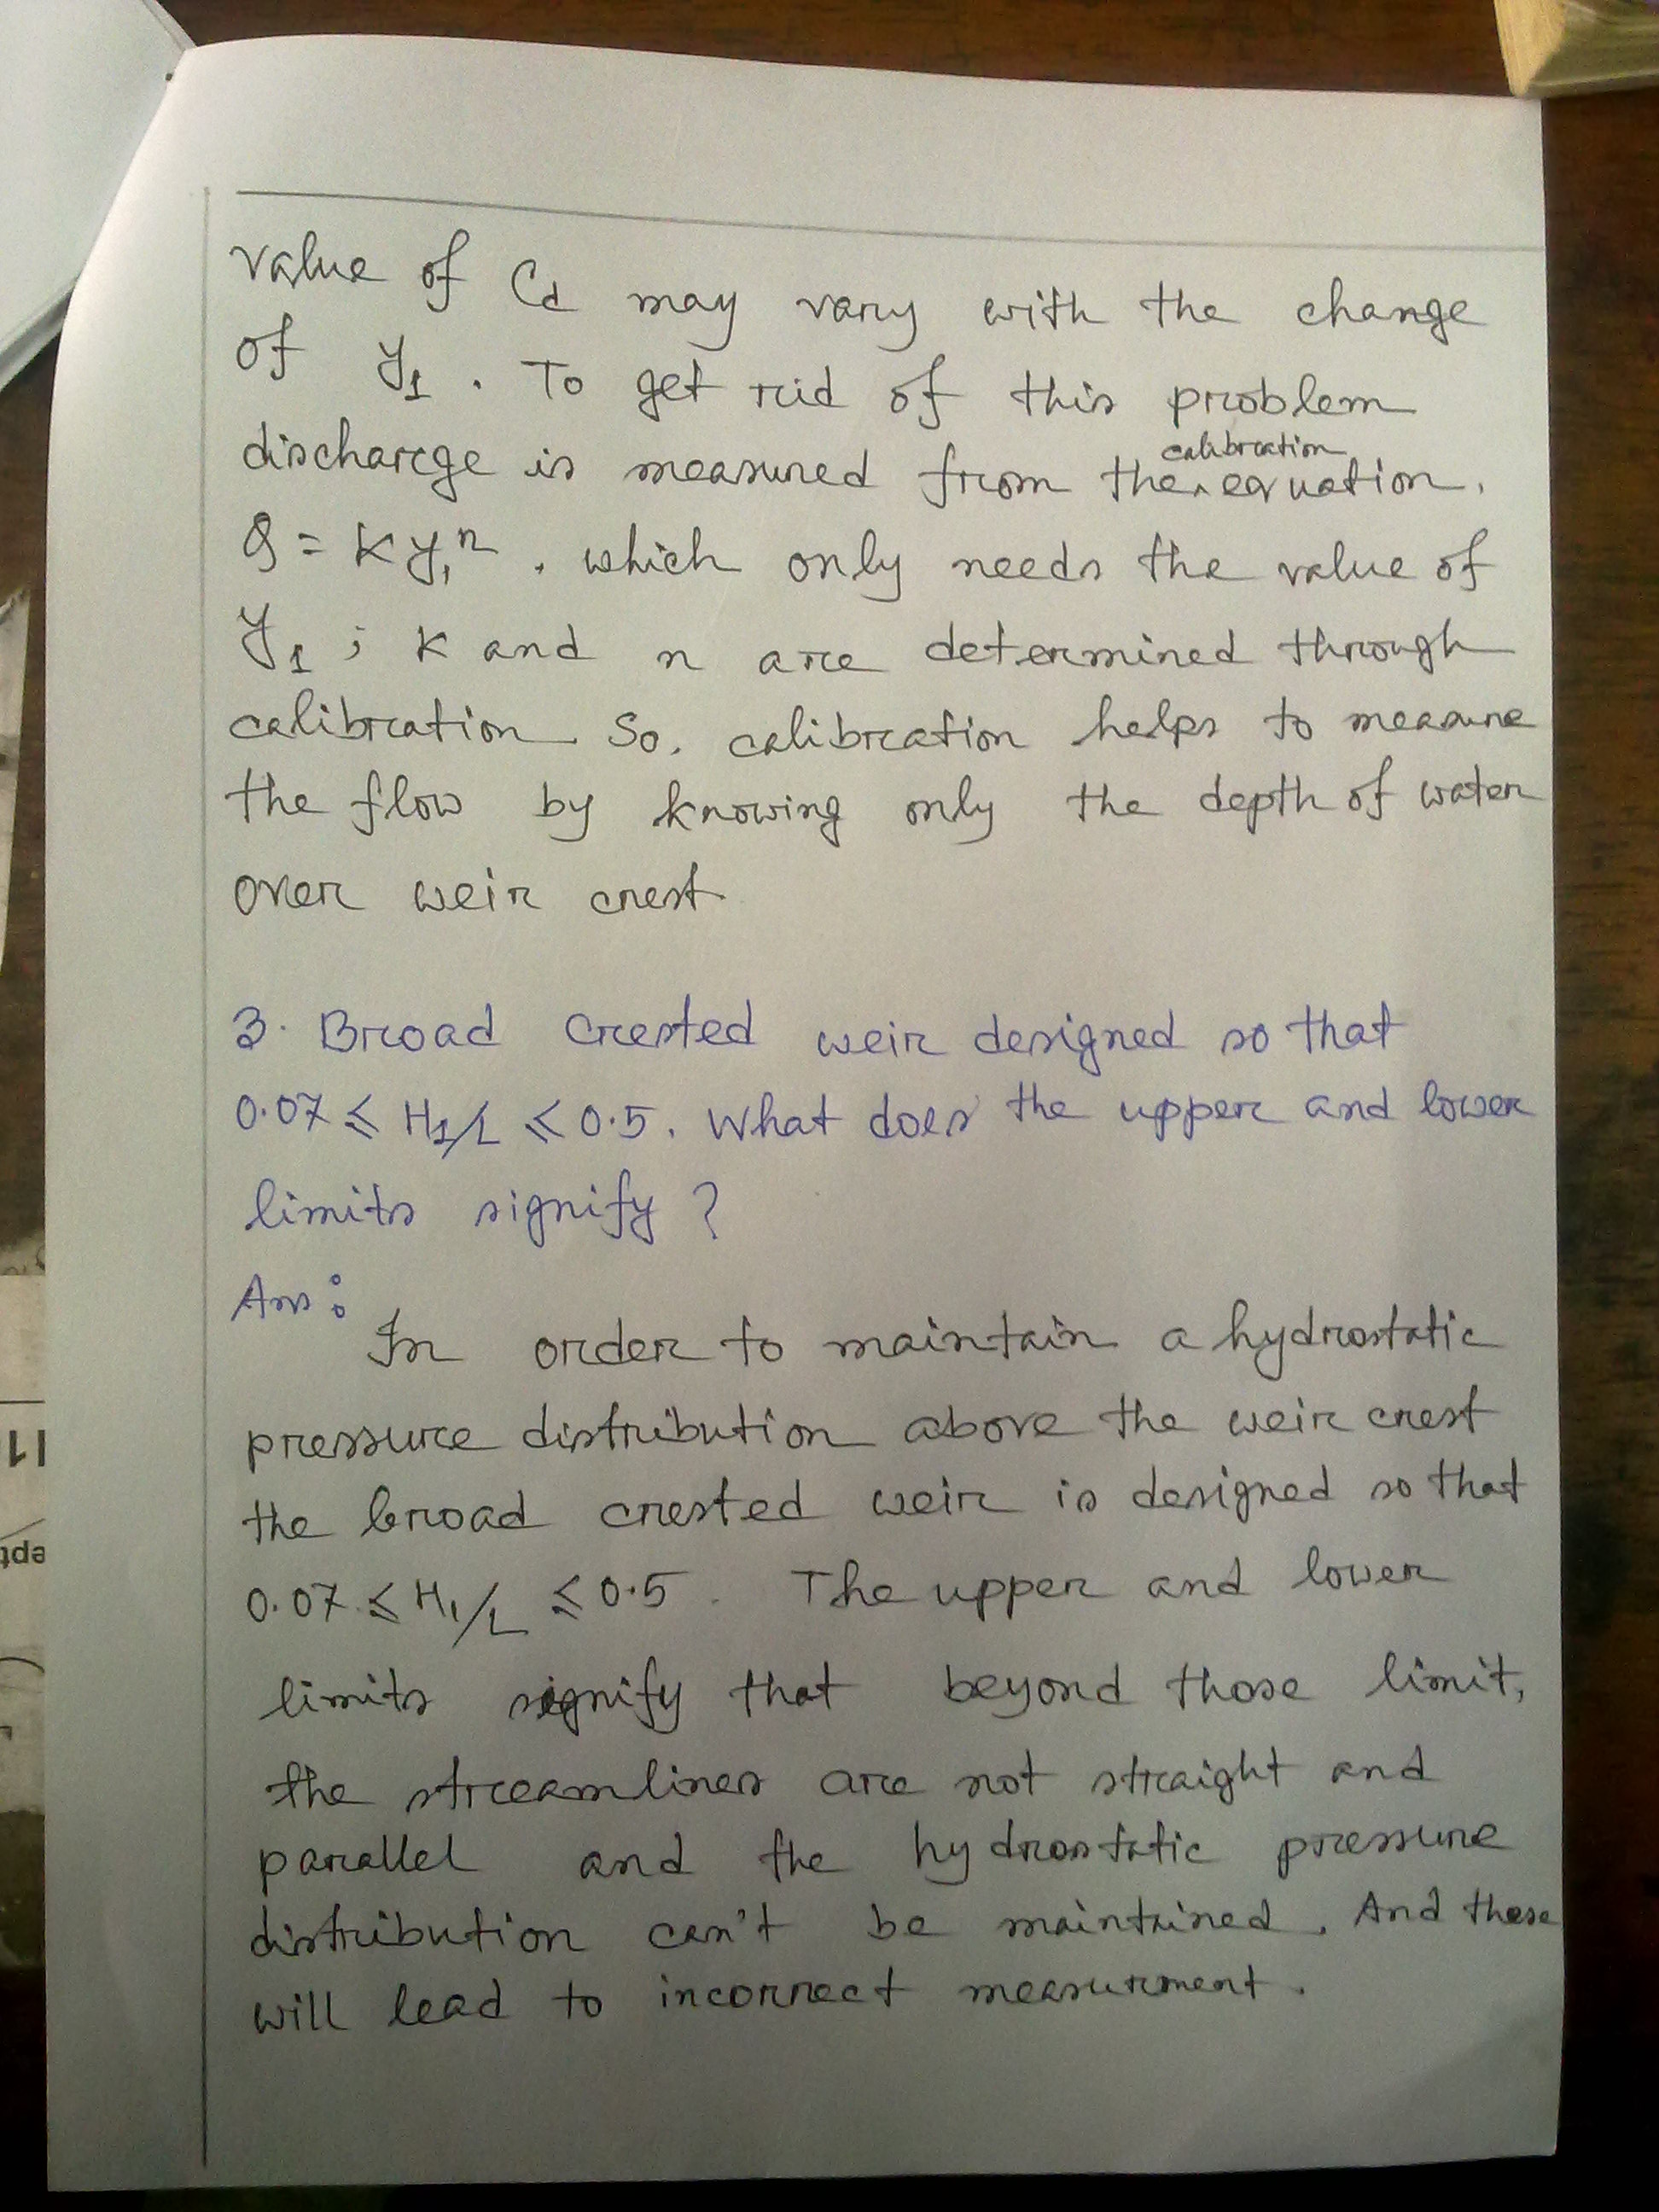 value of Cd may vary with the change
of y₁. To get rid of this problem
discharge is measured from the calibration equation.
Q = Ky₁ⁿ. which only needs the value of
y₁; K and n are determined through
calibration. So, calibration helps to measure
the flow by knowing only the depth of water
over weir crest
3. Broad Crested weir designed so that
0.07 ≤ H₁/L ≤ 0.5. What does the upper and lower
limits signify?
Ans:
In order to maintain a hydrostatic
pressure distribution above the weir crest
the broad crested weir is designed so that
0.07 ≤ H₁/L ≤ 0.5. The upper and lower
limits signify that beyond those limit,
the streamlines are not straight and
parallel and the hydrostatic pressure
distribution can't be maintained. And these
will lead to incorrect measurment.
11
ept